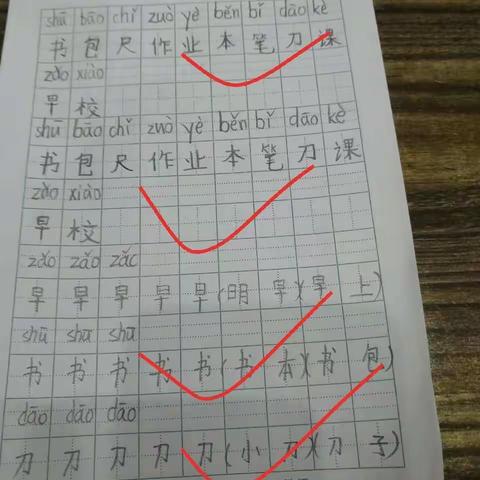 shū bāo chǐ zuò yè běn bǐ dāo kè
书 包 尺 作 业 本 笔 刀 课
zǎo xiào
早 校
shū bāo chǐ zuò yè běn bǐ dāo kè
书 包 尺 作 业 本 笔 刀 课
zǎo xiào
早 校
zǎo zǎo zǎc
早 早 早 早 早(明 早)(早 上)
shū shū shū
书 书 书 书 书(书 本)(书 包)
dāo dāo dāo
刀 刀 刀 刀 刀(小 刀)(刀 子)